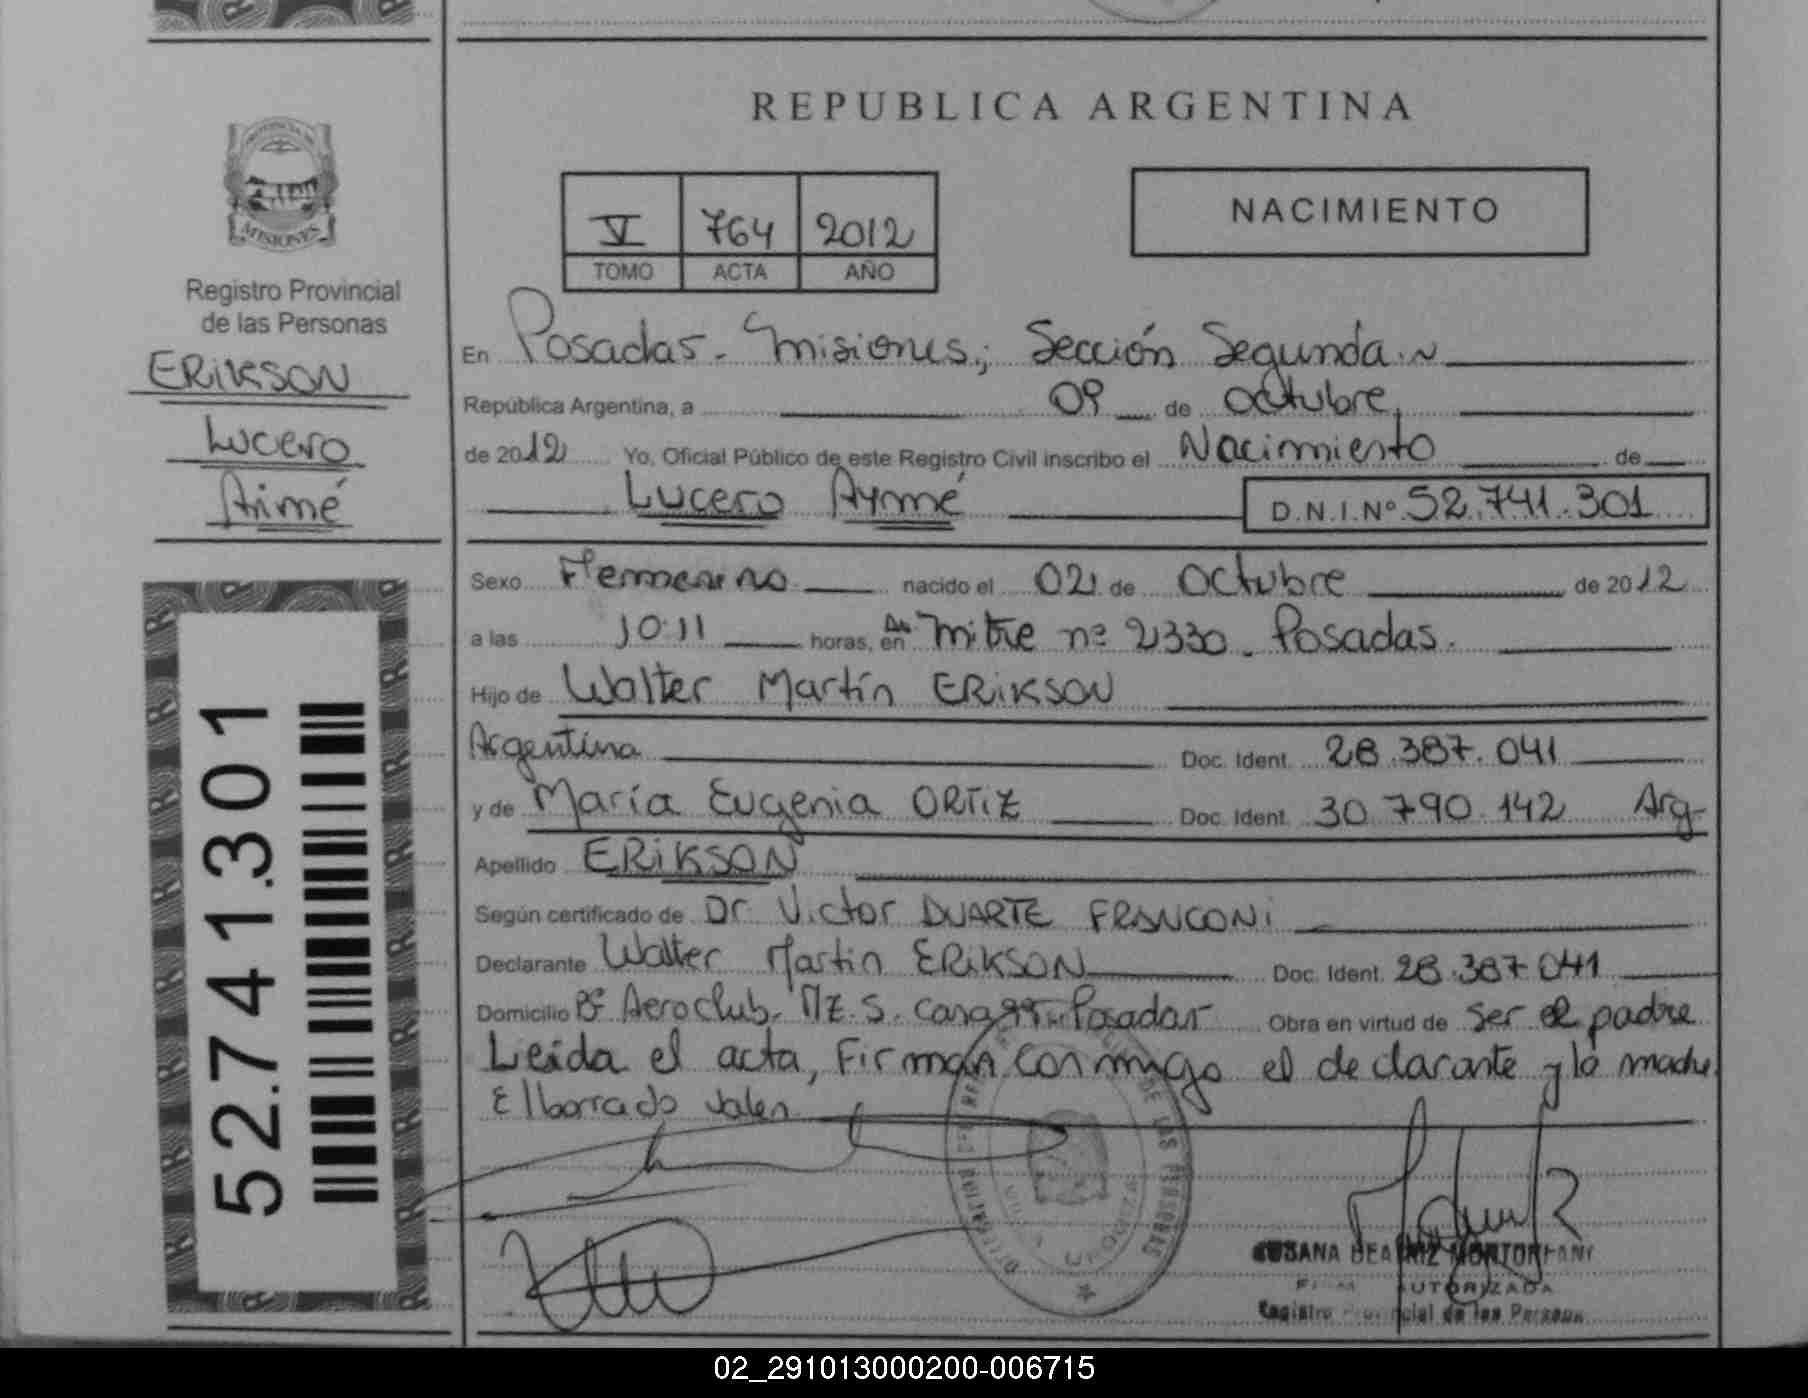 REPUBLICA ARGENTINA
PROVINCIA DE
MISIONES
Registro Provincial
de las Personas
ERIKSON
Lucero
Aimé
52.741.301
V 764 2012
TOMO ACTA AÑO
NACIMIENTO
En Posadas - Misiones; Sección Segunda
República Argentina, a 09 de octubre,
de 2012 Yo, Oficial Público de este Registro Civil inscribo el Nacimiento de
Lucero Aymé D.N.I.Nº 52.741.301
Sexo Femenino nacido el 02 de Octubre de 2012
a las 10:11 horas, en Av Mitre nº 2330. Posadas.
Hijo de Walter Martín ERIKSON
Argentina Doc. Ident. 28.387.041
y de María Eugenia ORTIZ Doc. Ident. 30.790.142 Arg-
Apellido ERIKSON
Según certificado de Dr. Victor DUARTE FRANCONI
Declarante Walter Martin ERIKSON Doc. Ident. 28.387.041
Domicilio Bº Aeroclub. Mz. S. Casa Posadas Obra en virtud de ser el padre
Leída el acta, Firman conmigo el declarante y la madre.
El borrado vale.
DE LAS PERSONAS
SUSANA BEATRIZ
FIRMA AUTORIZADA
Registro Provincial de las Personas
02_291013000200-006715